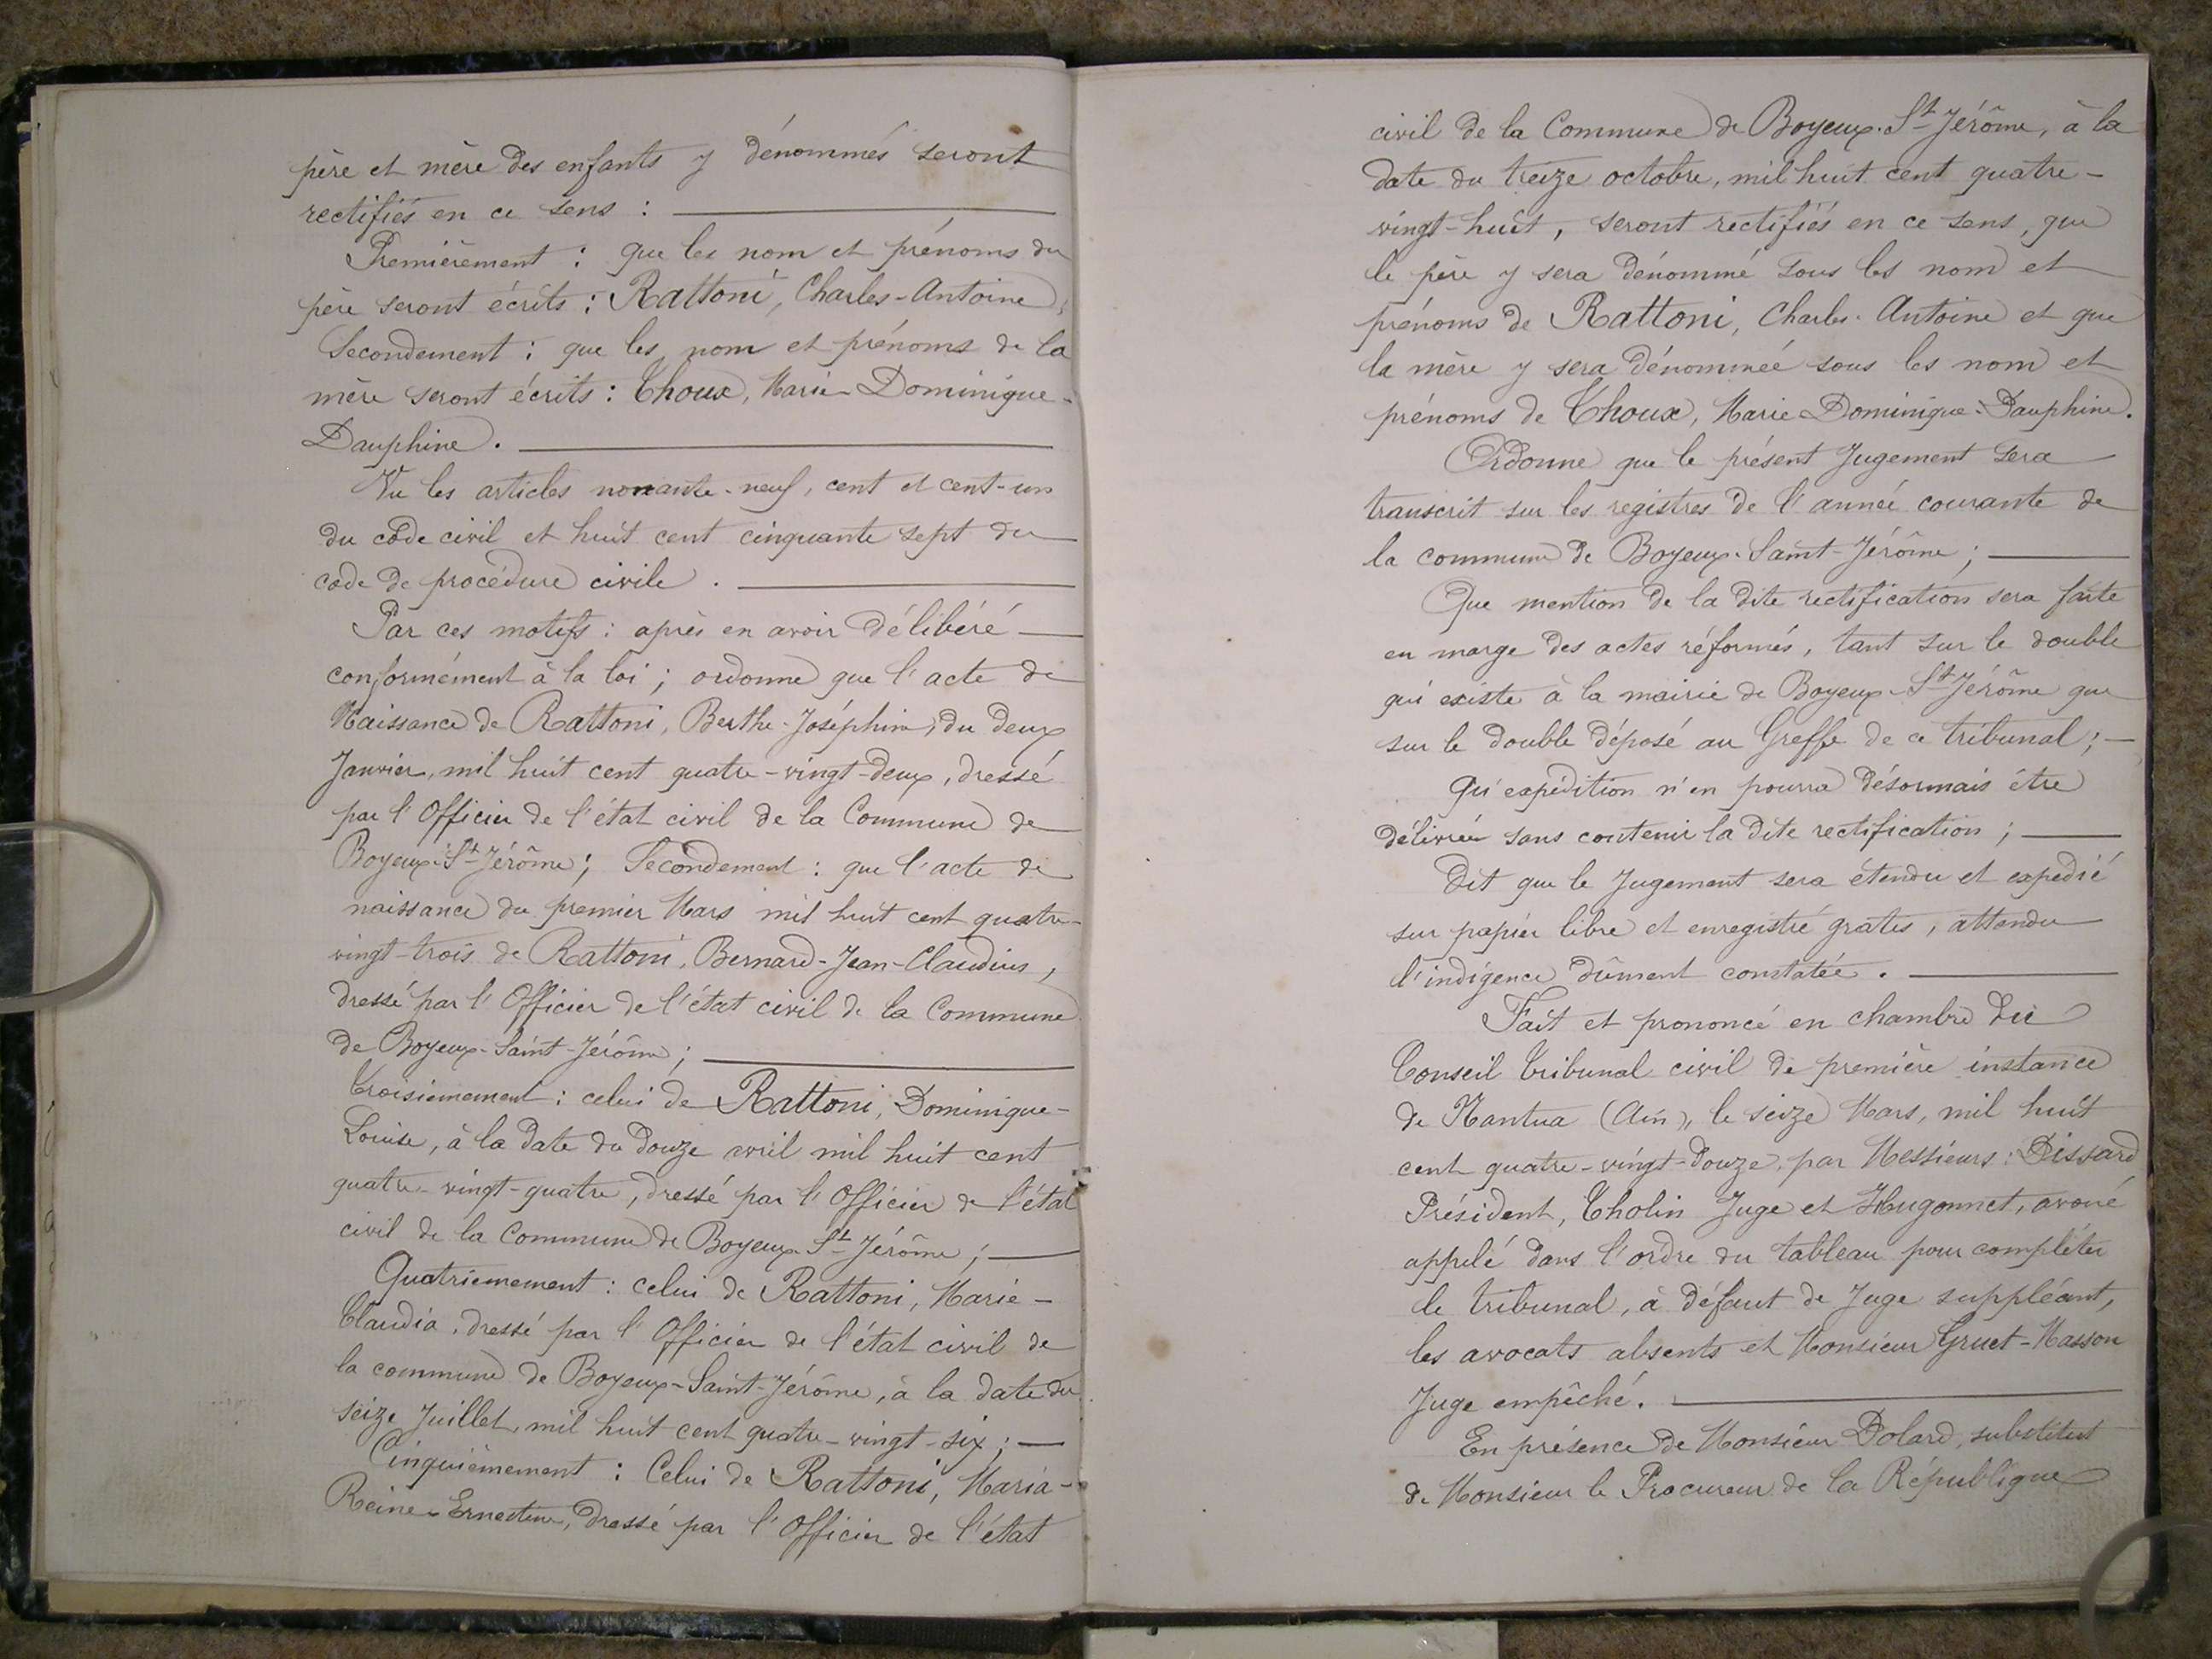 père et mère des enfants y dénommés seront
rectifiés en ce sens :
Premièrement : que les nom et prénoms du
père seront écrits : Rattoni, Charles-Antoine ;
Secondement : que les nom et prénoms de la
mère seront écrits : Thoux, Marie-Dominique-
Dauphine.
Vu les articles nonante-neuf, cent et cent-un
du code civil et huit cent cinquante sept du
code de procédure civile.
Par ces motifs : après en avoir délibéré
conformément à la loi ; ordonne que l'acte de
Naissance de Rattoni, Berthe-Joséphine, du deux
Janvier, mil huit cent quatre-vingt-deux, dressé
par l'Officier de l'état civil de la Commune de
Boyeux-St-Jérôme ; Secondement : que l'acte de
naissance du premier Mars mil huit cent quatre-
vingt-trois de Rattoni, Bernard-Jean-Claudius,
dressé par l'Officier de l'état civil de la Commune
de Boyeux-Saint-Jérôme ;
Troisièmement : celui de Rattoni, Dominique-
Louise, à la date du douze avril mil huit cent
quatre-vingt-quatre, dressé par l'Officier de l'état
civil de la Commune de Boyeux-St-Jérôme ;
Quatrièmement : celui de Rattoni, Marie-
Claudia, dressé par l'Officier de l'état civil de
la commune de Boyeux-Saint-Jérôme, à la date du
seize Juillet, mil huit cent quatre-vingt-six ;
Cinquièmement : Celui de Rattoni, Maria-
Reine-Ernestine, dressé par l'Officier de l'état
civil de la Commune de Boyeux-St-Jérôme, à la
date du treize octobre, mil huit cent quatre-
vingt-huit, seront rectifiés en ce sens, que
le père y sera dénommé sous les nom et
prénoms de Rattoni, Charles-Antoine et que
la mère y sera dénommée sous les nom et
prénoms de Thoux, Marie-Dominique-Dauphine.
Ordonne que le présent Jugement sera
transcrit sur les registres de l'année courante de
la commune de Boyeux-Saint-Jérôme ;
Que mention de la dite rectification sera faite
en marge des actes réformés, tant sur le double
qui existe à la mairie de Boyeux-St-Jérôme que
sur le double déposé au Greffe de ce tribunal ;
Qu'expédition n'en pourra désormais être
délivrée sans contenir la dite rectification ;
Dit que le Jugement sera étendu et expedié
sur papier libre et enregistré gratis, attendu
l'indigence dûment constatée.
Fait et prononcé en chambre du
Conseil Tribunal civil de première instance
de Nantua (Ain), le seize Mars, mil huit
cent quatre-vingt-douze, par Messieurs : Dissard
Président, Tholin Juge et Hugonnet, avoué
appelé dans l'ordre du tableau pour compléter
le tribunal, à défaut de Juge suppléant,
les avocats absents et Monsieur Gruet-Masson
Juge empêché.
En présence de Monsieur Dolard, substitut
de Monsieur le Procureur de la République